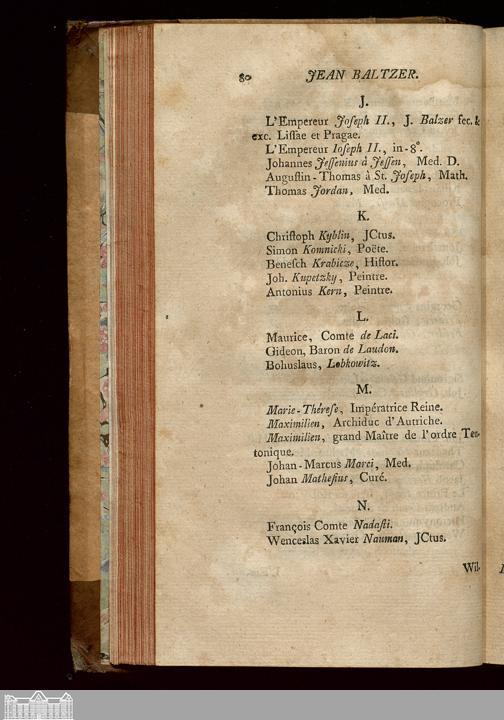 80 JEAN BALTZER.
J.
L'Empereur Joſeph II., J. Balzer fec. &
exc. Liſſae et Pragae.
L'Empereur Ioſeph II., in-8°.
Johannes Jeſſenius à Jeſſen, Med. D.
Auguſtin-Thomas à St. Joſeph, Math.
Thomas Jordan, Med.
K.
Chriſtoph Kyblin, JCtus.
Simon Komnicki, Poëte.
Beneſch Krabicze, Hiſtor.
Joh. Kupetzky, Peintre.
Antonius Kern, Peintre.
L.
Maurice, Comte de Laci.
Gideon, Baron de Laudon.
Bohuslaus, Lobkowitz.
M.
Marie-Théreſe, Impératrice Reine.
Maximilien, Archiduc d'Autriche.
Maximilien, grand Maître de l'ordre Teu-
tonique.
Johan-Marcus Marci, Med.
Johan Matheſius, Curé.
N.
François Comte Nadaſti.
Wenceslas Xavier Nauman, JCtus.
Wil-